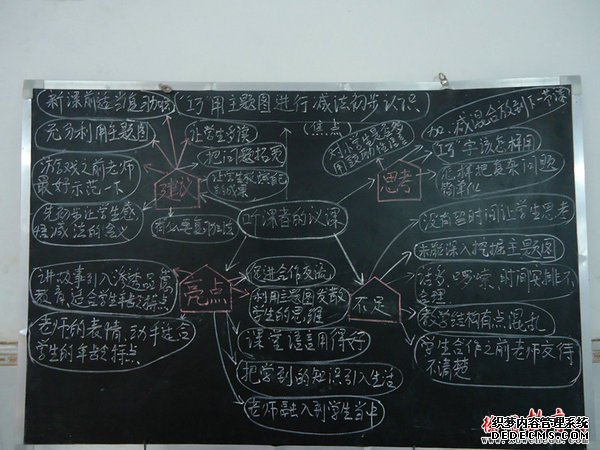 新课前适当复习加法
巧用主题图进行减法初步认识
充分利用主题图
让学生多读
(焦点)
加、减混合放到下一节课
把问题抛页
“巧”字该怎样用
做游戏之前老师
最好示范一下
建议
思考
怎样把复杂问题
简单化
先初步让学生感
悟减法的含义
听课者的议课
没有留时间让学生思考
未能深入挖掘主题图
讲故事引入渗透品德
教育，适合学生年龄特点
亮点
促进合作交流
利用主题图发散
学生的思维
不足
话多、啰嗦，时间安排不
合理
教学结构有点混乱
老师的表情、动手适合
学生的年龄特点
课堂语言用得好
学生合作之前老师交待
不清楚
把学到的知识引入生活
老师融入到学生当中
织梦内容管理系统
DEDECMS.COM